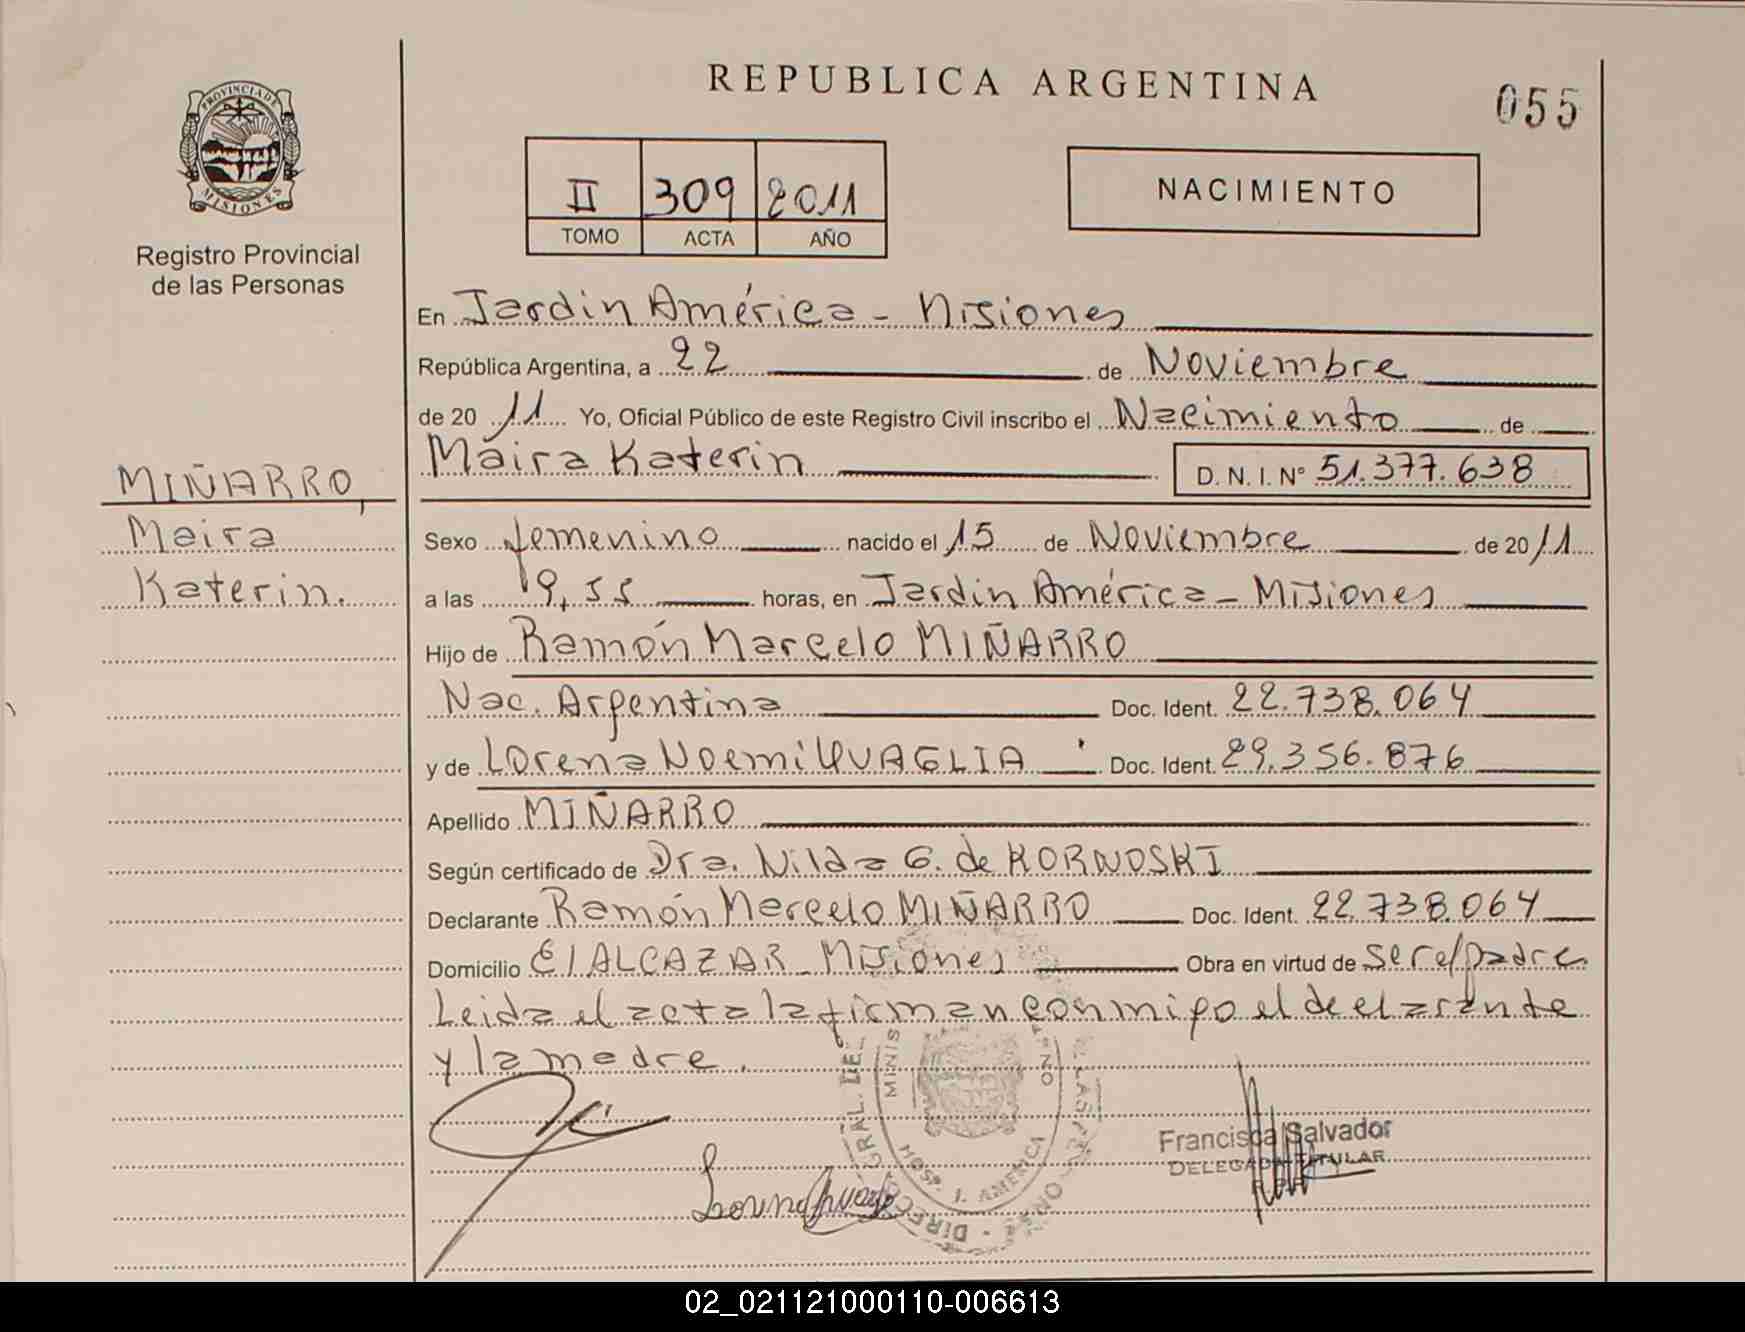 REPUBLICA ARGENTINA
055
PROVINCIA DE
MISIONES
Registro Provincial
de las Personas
II 309 2011
TOMO ACTA AÑO
NACIMIENTO
En Jardin América - Misiones
República Argentina, a 22 de Noviembre
de 2011 Yo, Oficial Público de este Registro Civil inscribo el Nacimiento de
Maira Katerin D. N. I. Nº 51.377.638
MIÑARRO,
Maira
Katerin.
Sexo femenino nacido el 15 de Noviembre de 2011
a las 9,55 horas, en Jardin América - Misiones
Hijo de Ramón Marcelo MIÑARRO
Nac. Argentina Doc. Ident. 22.738.064
y de Lorena Noemi QUAGLIA Doc. Ident. 29.356.876
Apellido MIÑARRO
Según certificado de Dra. Nilda G. de KORNOSKI
Declarante Ramón Marcelo MIÑARRO Doc. Ident. 22.738.064
Domicilio El ALCAZAR - Misiones Obra en virtud de ser el padre
Leida el acta la firman conmigo el declarante
y la madre.
Francisca Salvador
DELEGADA TITULAR
HOSP. J. AMERICA
02_021121000110-006613